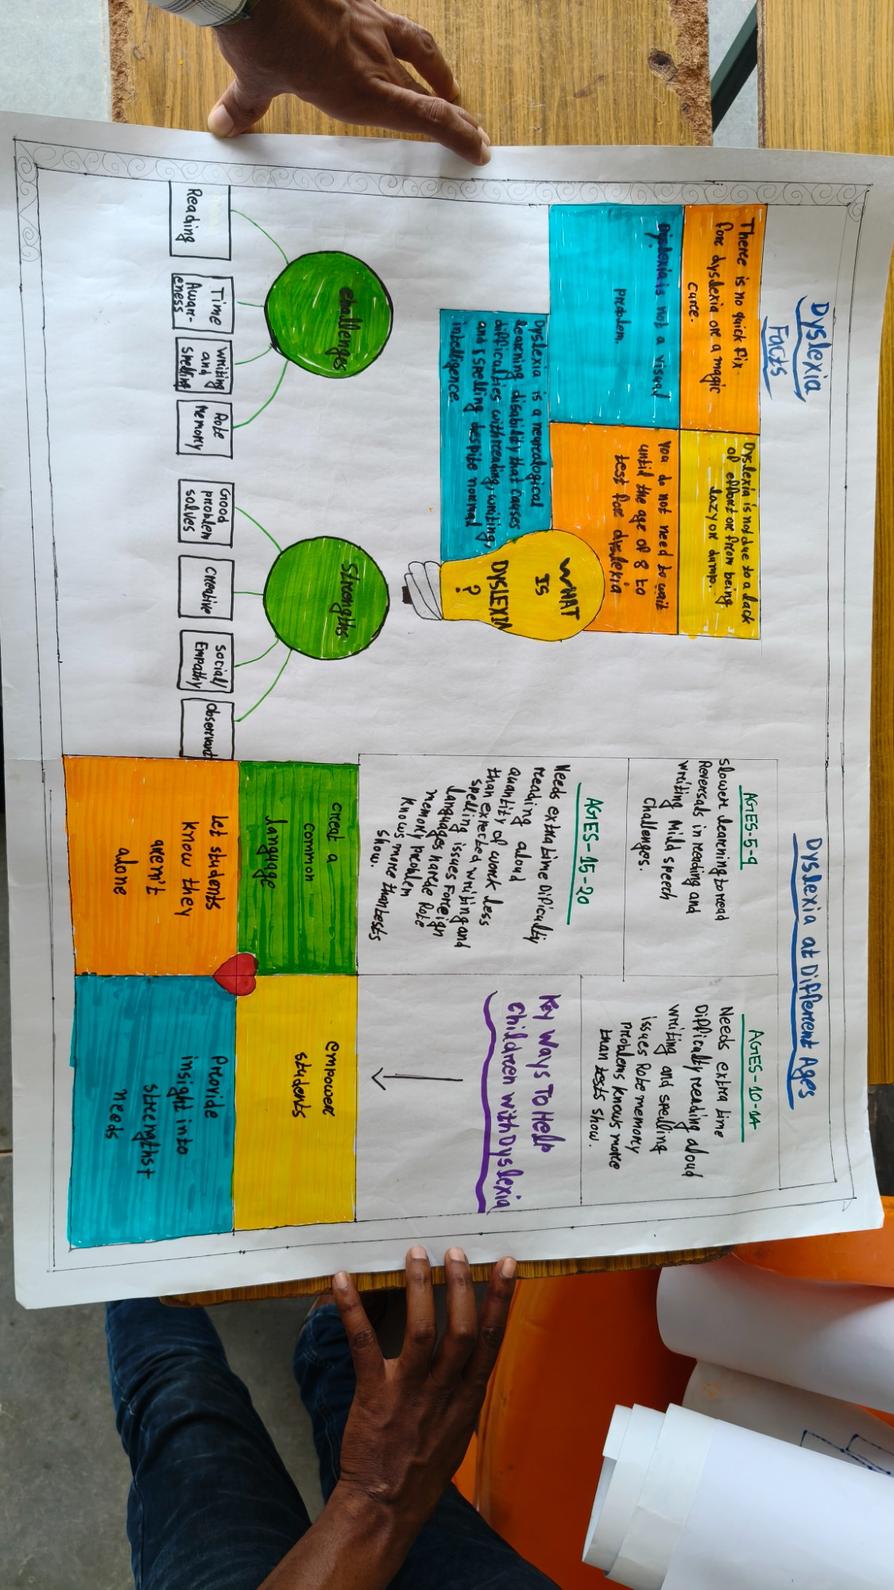 Dyslexia
Facts
There is no quick fix
for dyslexia or a magic
cure.
Dyslexia is not due to a lack
of effort or from being
lazy or dump.
Dyslexia is not a visual
problem.
You do not need to wait
until the age of 8 to
test for dyslexia
Dyslexia is a neurological
learning disability that causes
difficulties with reading, writing,
and spelling despite normal
intelligence
WHAT
IS
DYSLEXIA
?
Challenges
Reading
Time
Awar-
eness
Writing
and
Spelling
Rote
Memory
Strengths
Good
problem
solves
Creative
Social/
Empathy
Observant
Dyslexia at Different Ages
AGES-5-9
Slower learning to read
Reversals in reading and
writing Mild speech
Challenges.
AGES-10-14
Needs extra time
Difficulty reading aloud
writing and spelling
issues Rote memory
problems knows more
than tests show.
AGES-15-20
Needs extra time Dificulty
reading aloud
quantity of work less
than experted writing and
spelling issues Foreign
languages harde Rote
memory problem
knows more than tests
show.
Key Ways To Help
Children with Dyslexia
creat a
common
language
empower
students
Let students
know they
aren't
alone
Provide
insight into
strengths+
needs